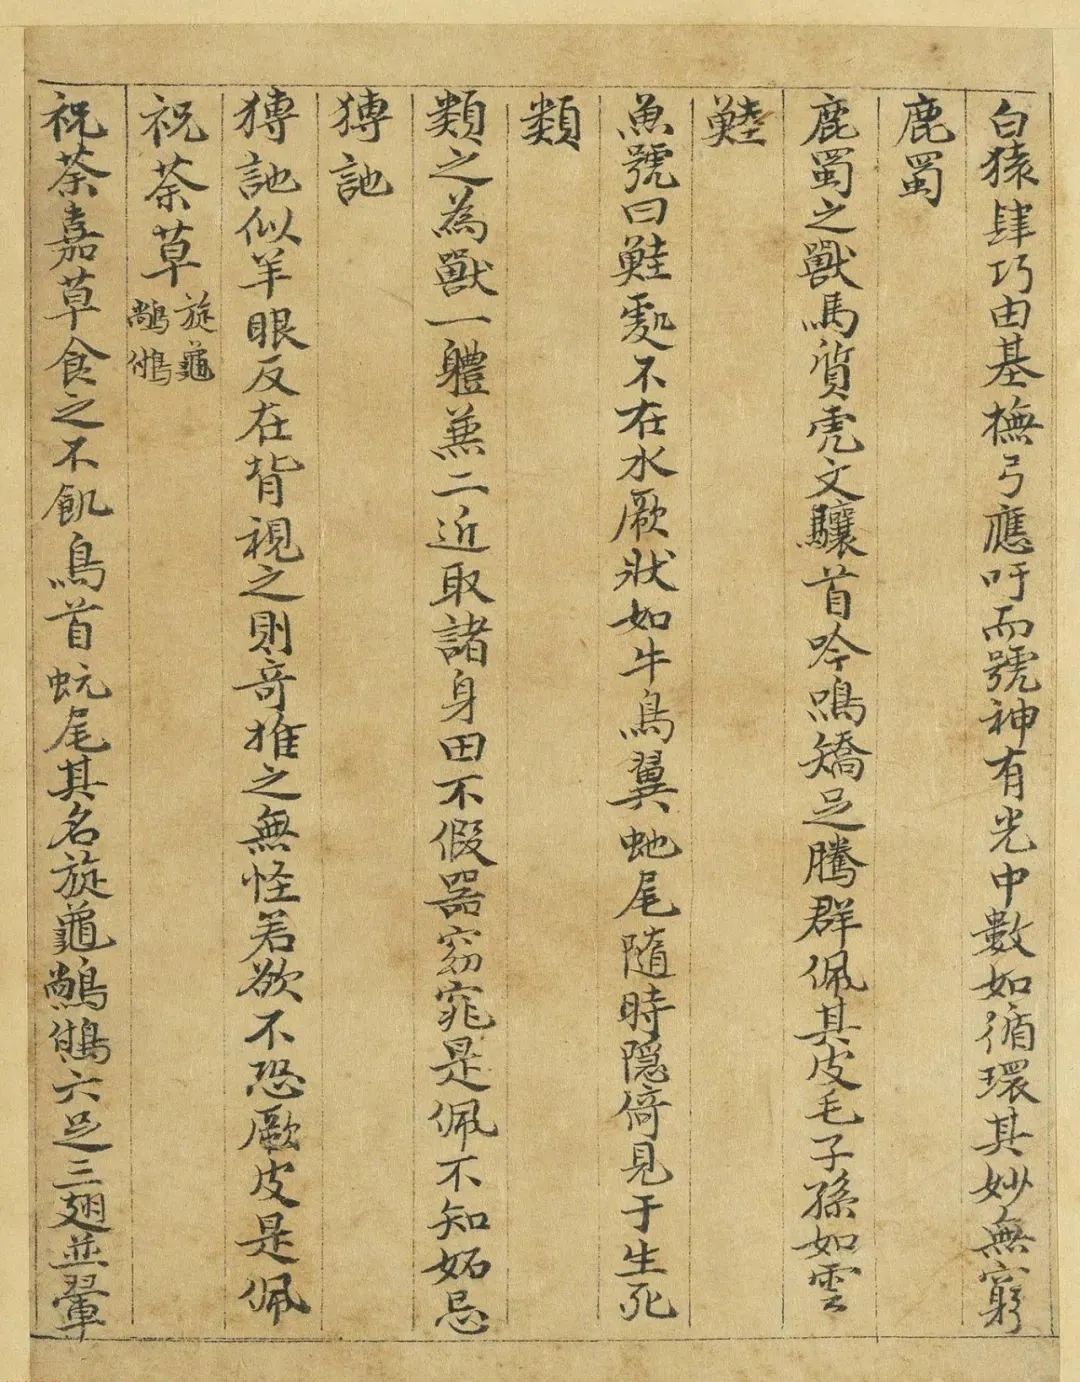 白猿肆巧由基撫弓應吁而號神有光中數如循環其妙無窮
鹿蜀
鹿蜀之獸馬質虎文驤首吟鳴矯足騰群佩其皮毛子孫如雲
鯥
魚號曰鯥處不在水厥狀如牛鳥翼虵尾隨時隱倚見于生死
類
類之為獸一體兼二近取諸身田不假器窈窕是佩不知妬忌
猼訑
猼訑似羊眼反在背視之則奇推之無怪若欲不恐厥皮是佩
祝荼草 旋龜 鵸鵂
祝荼嘉草食之不飢鳥首虺尾其名旋龜鵸鵂六足三翅並翬